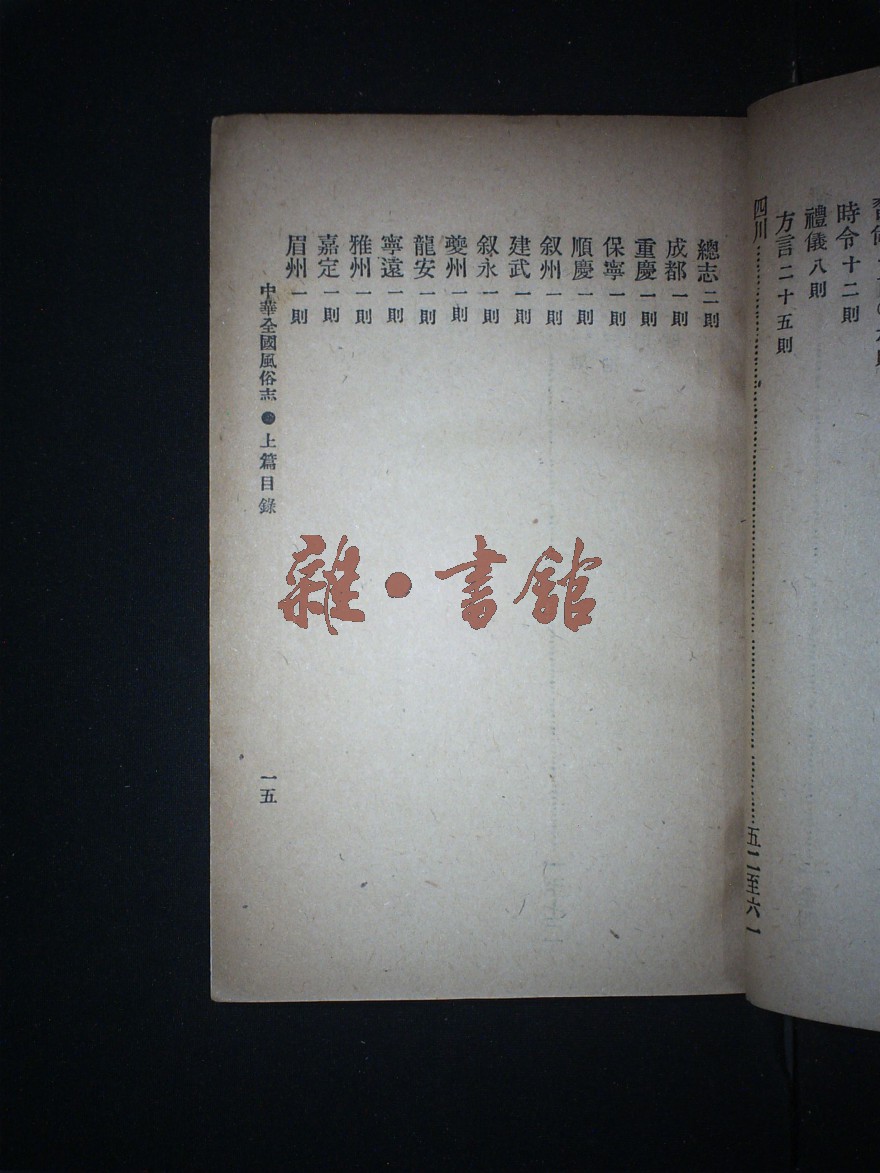 時令十二則
禮儀八則
方言二十五則
四川……五二至六一
總志二則
成都一則
重慶一則
保寧一則
順慶一則
叙州一則
建武一則
叙永一則
夔州一則
龍安一則
寧遠一則
雅州一則
嘉定一則
眉州一則
中華全國風俗志●上篇目錄
一五
雜·書館